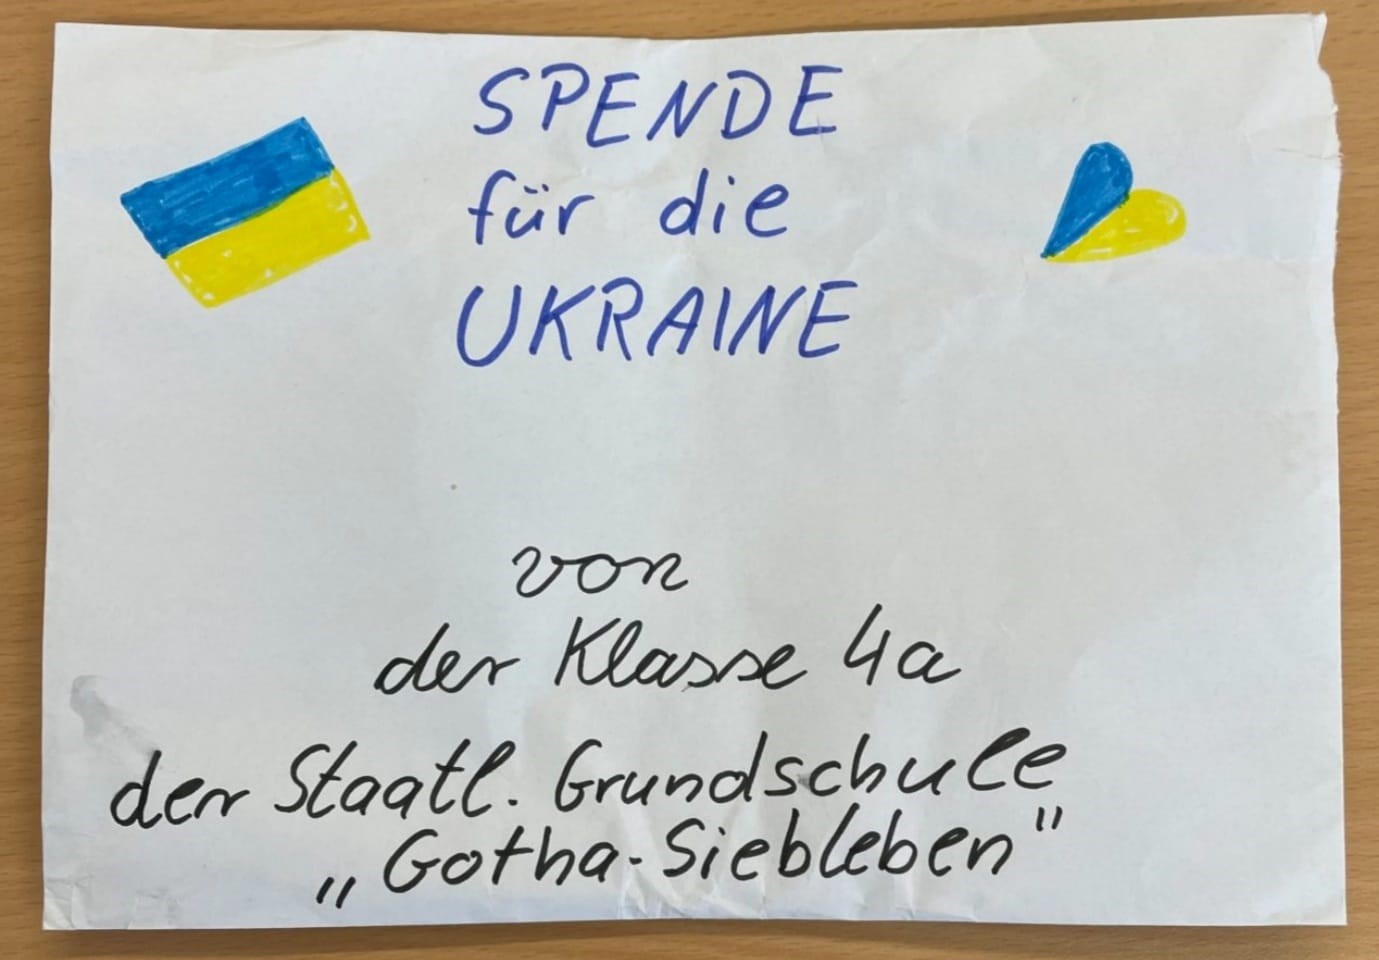 SPENDE
für die
UKRAINE
von
der Klasse 4a
der Staatl. Grundschule
„Gotha-Siebleben"